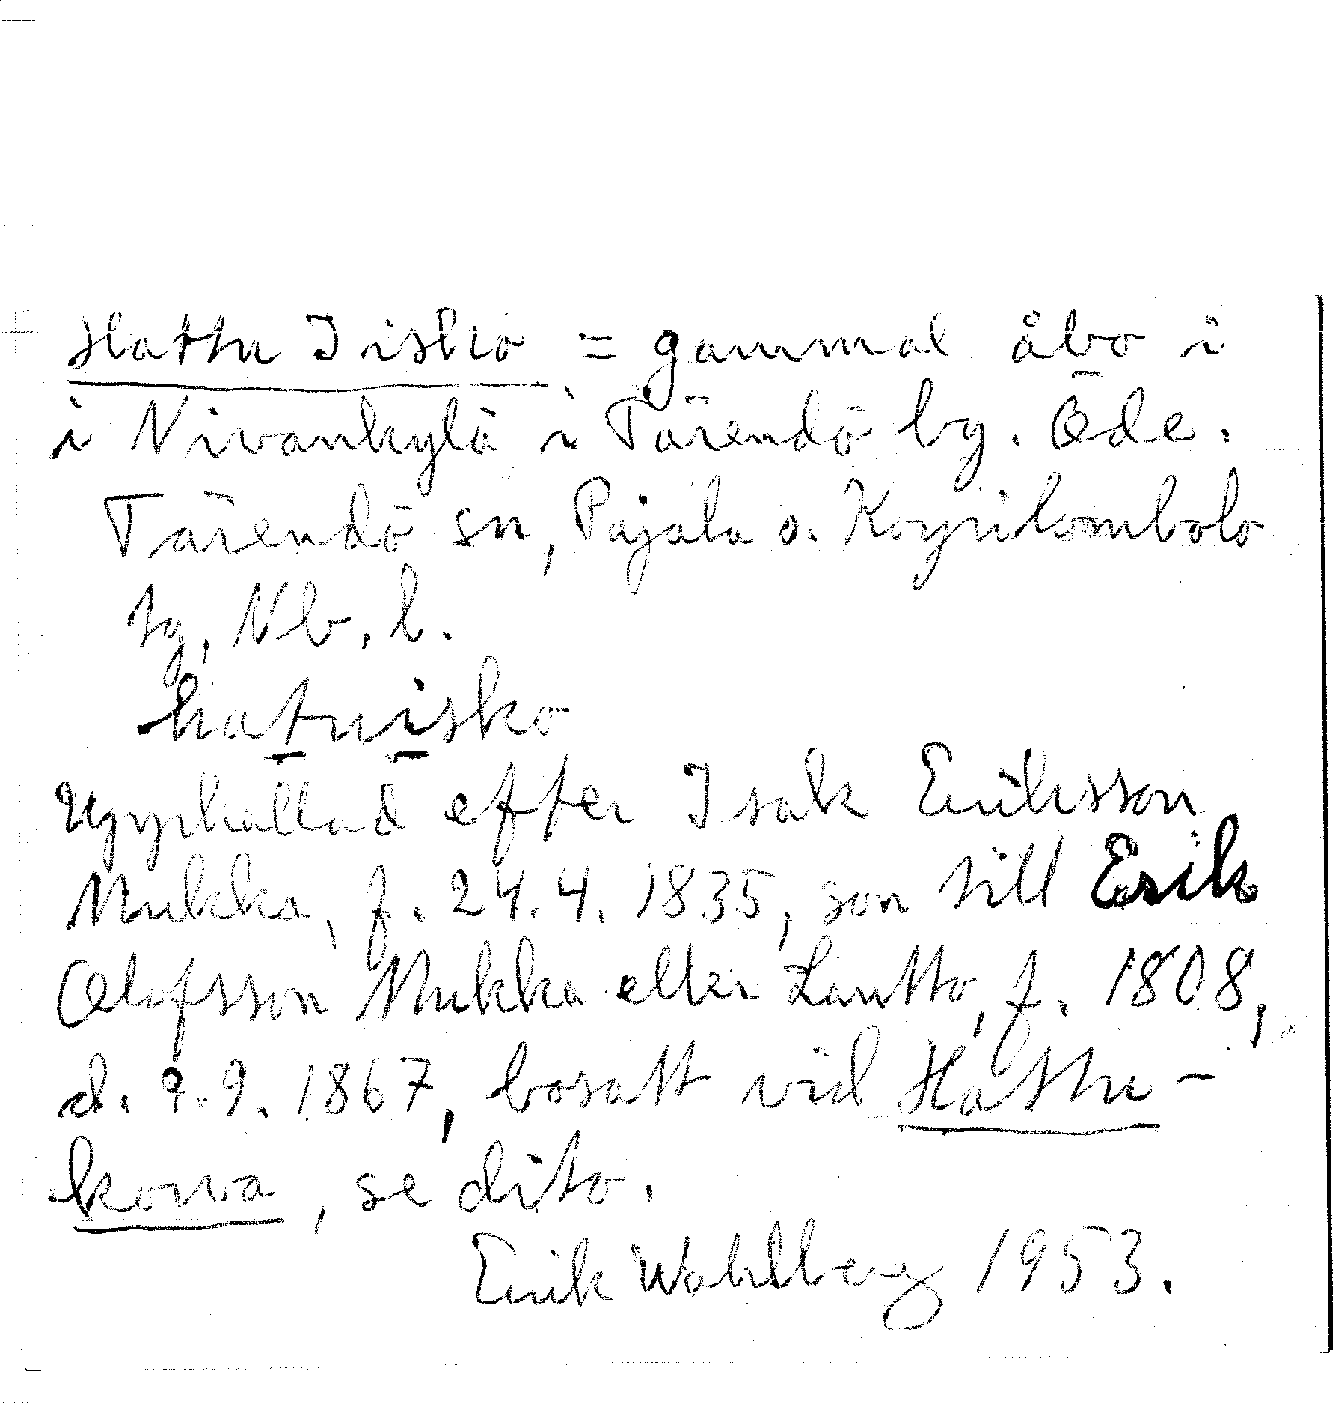 Hattu Iisko = gammal åbo i
i Nivankylä i Tärendö by. Öde.
Tärendö sn, Pajala o. Korpilombolo
tg, Nb. l.
hatuisko
Uppkallad efter Isak Eriksson
Mukka, f. 24.4. 1835, son till Erik
Olofsson Mukka eller Lautto, f. 1808,
d. 9.9. 1867, bosatt vid Hattu-
korva, se dito.
Erik Wahlberg 1953.